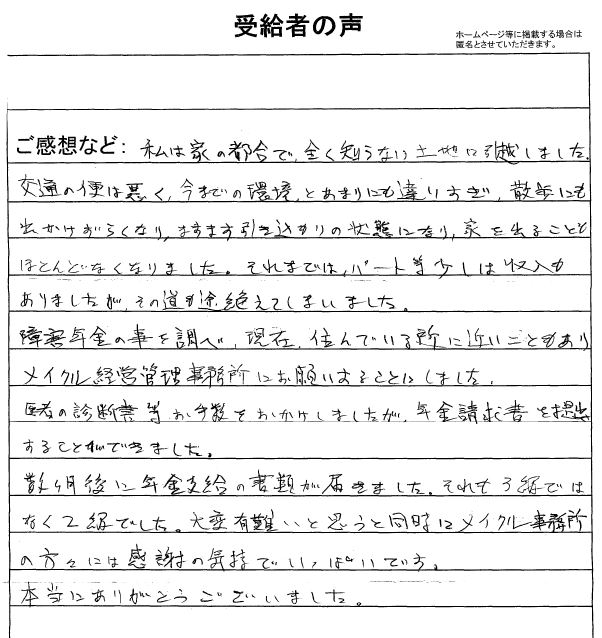 受給者の声
ホームページ等に掲載する場合は
匿名とさせていただきます。
ご感想など：私は家の都合で、全く知らない土地に引越しました。
交通の便は悪く、今までの環境とあまりにも違いすぎ、散歩にも
出かけづらくなり、ますます引き込もりの状態になり、家を出ることも
ほとんどなくなりました。それまでは、パート等少しは収入も
ありましたが、その道も途絶えてしまいました。
障害年金の事を調べ、現在、住んでいる所に近いこともあり
メイクル経営管理事務所にお願いすることにしました。
医者の診断書等お手数をおかけしましたが、年金請求書を提出
することができました。
数ヶ月後に年金支給の書類が届きました。それも3級では
なく2級でした。大変有難いと思うと同時にメイクル事務所
の方々には感謝の気持でいっぱいです。
本当にありがとうございました。